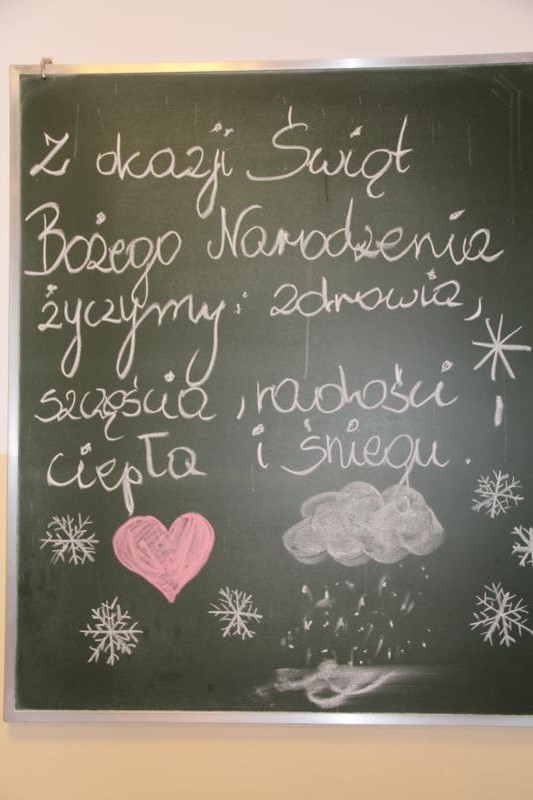 Z okazji Świąt
Bożego Narodzenia
życzymy: zdrowia,
szczęścia, radości,
ciepła i śniegu.